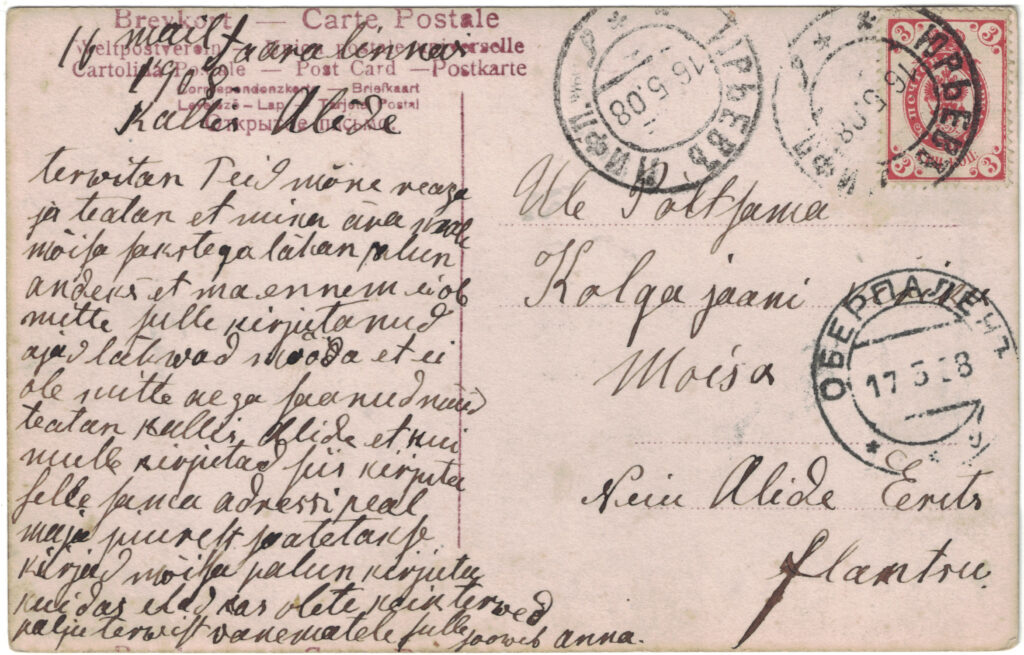 Brevkort — Carte Postale
Weltpostverein — Union postale universelle
Cartolina Postale — Post Card — Postkarte
Correspondenzkarte — Briefkaart
Levelező-Lap — Tarjeta Postal
Открытое письмо
16 mail Jaanalinnas
1908
Kallis Alide
terwitan Teid mõne reaga
ja teatan et mina ära
mõisa sakstega lähän palun
andeks et ma ennem ei ole
mitte sulle kirjutanud
ajad lähwad mööda et ei
ole mitte aega saanud nüid
teatan kallis Alide et kui
mulle kirjutad siis kirjuta
selle sama adressi peal
maja juurest saatetakse
kirjad mõisa palun kirjuta
kuidas elad kas olete keik terwed
palju terwist vanematele sulle soowib anna.
ЮРЬЕВЪ ЛИФЛ.
16.5.08
ЮРЬЕВЪ ЛИФЛ.
16.5.08
3 3
3 3
Üle Poltsama
Kolga jaani
Moisa
ОБЕРПАЛЕНЪ
17 5 08
Neiu Alide Erits